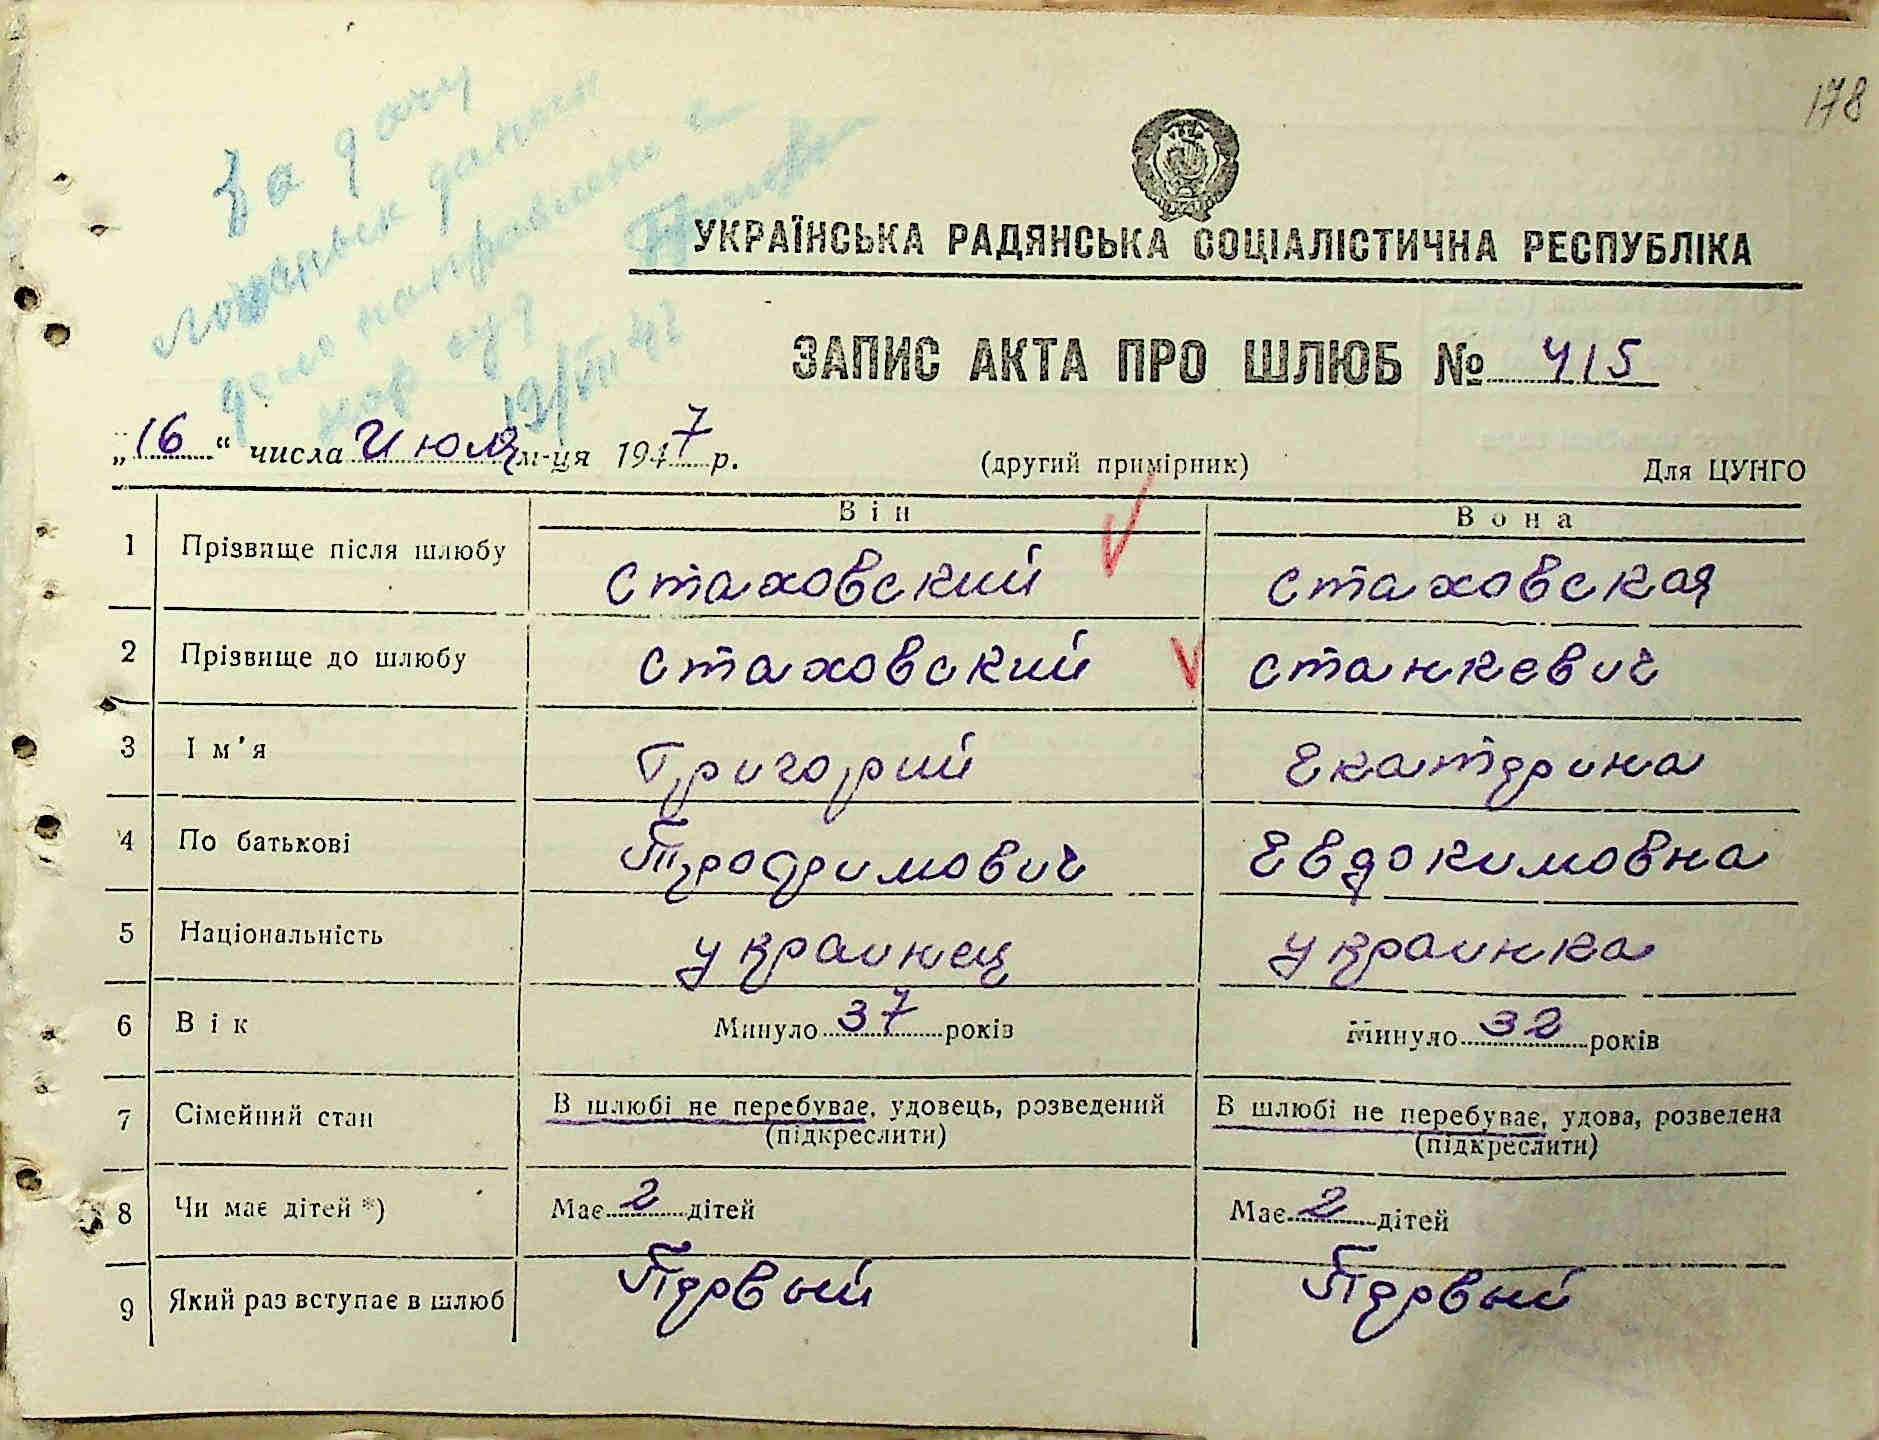 178
За дачу
ложных данных
дело направлено в
нар суд
19/VII 47
УКРАЇНСЬКА РАДЯНСЬКА СОЦІАЛІСТИЧНА РЕСПУБЛІКА
ЗАПИС АКТА ПРО ШЛЮБ № 415
„16“ числа Июля м-ця 1947 р. (другий примірник) Для ЦУНГО
Він Вона
1 Прізвище після шлюбу Стаховский Стаховская
2 Прізвище до шлюбу Стаховский Станкевич
3 Ім'я Григорий Екатерина
4 По батькові Трофимович Евдокимовна
5 Національність украинец украинка
6 Вік Минуло 37 років Минуло 32 років
7 Сімейний стан В шлюбі не перебуває, удовець, розведений В шлюбі не перебуває, удова, розведена
(підкреслити) (підкреслити)
8 Чи має дітей *) Має 2 дітей Має 2 дітей
9 Який раз вступає в шлюб Первый Первый